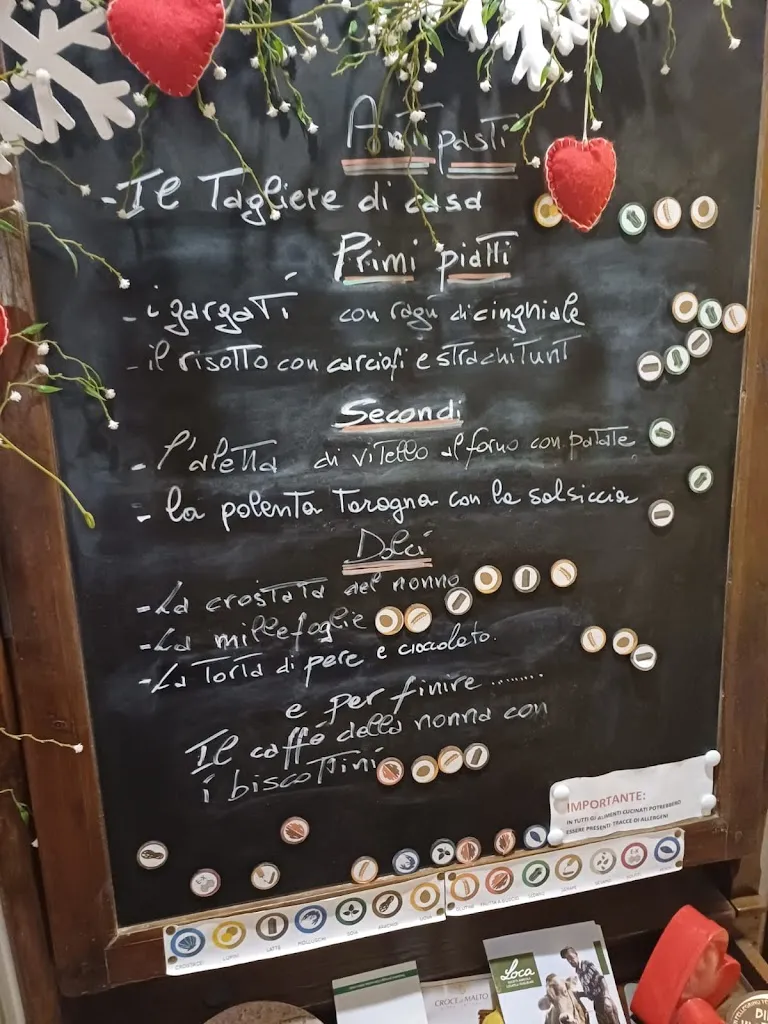 Antipasti
- Il Tagliere di casa
Primi piatti
- i gargati con ragù di cinghiale
- il risotto con carciofi e strachitunt
Secondi
- l'aletta di vitello al forno con patate
- la polenta Taragna con la salsiccia
Dolci
- La crostata del nonno
- La millefoglie
- La Torta di pere e cioccolato.
e per finire ........
Il caffé della nonna con
i biscottini
IMPORTANTE:
IN TUTTI GI ALIMENTI CUCINATI POTREBBERO
ESSERE PRESENTI TRACCE DI ALLERGENI
CROSTACEI LUPINI LATTE MOLLUSCHI SOIA ARACHIDI UOVA GLUTINE FRUTTA A GUSCIO SEDANO SENAPE SESAMO
Loca
CROCE di MALTO